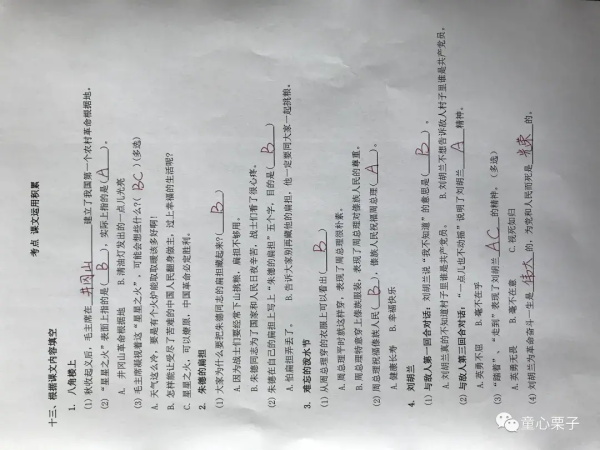 考点 课文运用积累
十三、根据课文内容填空
1. 八角楼上
(1) 秋收起义后，毛主席在 井冈山 建立了我国第一个农村革命根据地。
(2) “星星之火”表面上指的是( B )，实际上指的是( A )。
A. 井冈山革命根据地 B. 清油灯发出的一点儿光亮
(3) 毛主席凝视着这“星星之火”，可能会想些什么?( BC )(多选)
A. 天气这么冷，要是有个火炉能取取暖该多好啊!
B. 怎样能让受尽了苦难的中国人民翻身做主，过上幸福的生活呢?
C. 星星之火，可以燎原，中国革命必定胜利。
2. 朱德的扁担
(1) 大家为什么要把朱德同志的扁担藏起来?( B )
A. 因为战士们要经常下山挑粮，扁担不够用。
B. 朱德同志为了国家和人民日夜辛苦，战士们看了很心疼。
(2) 朱德在自己的扁担上写上“朱德的扁担”五个字，目的是( B )。
A. 怕扁担弄丢了。 B. 告诉大家别再藏他的扁担，他一定要同大家一起挑粮。
3. 难忘的泼水节
(1) 从周总理穿的衣服上可以看出( B )
A. 周总理平时就这样穿，表现了周总理很朴素。
B. 周总理特意穿上傣族服装，表现了周总理对傣族人民的尊重。
(2) 周总理祝福傣族人民( B )，傣族人民祝福周总理( A )。
A. 健康长寿 B. 幸福快乐
4. 刘胡兰
(1) 与敌人第一回合对话：刘胡兰说“我不知道”的意思是( B )。
A. 刘胡兰真的不知道村子里谁是共产党员。 B. 刘胡兰不想告诉敌人村子里谁是共产党员。
(2) 与敌人第三回合对话：“一点儿也不动摇”说明了刘胡兰 A 精神。
A. 英勇不屈 B. 毫不在乎
(3) “踏着”、“走到”表现了刘胡兰 AC 的精神。(多选)
A. 英勇无畏 B. 毫不在意 C. 视死如归
(4) 刘胡兰为革命奋斗一生是 伟大 的，为党和人民而死是 光荣 的。
童心栗子